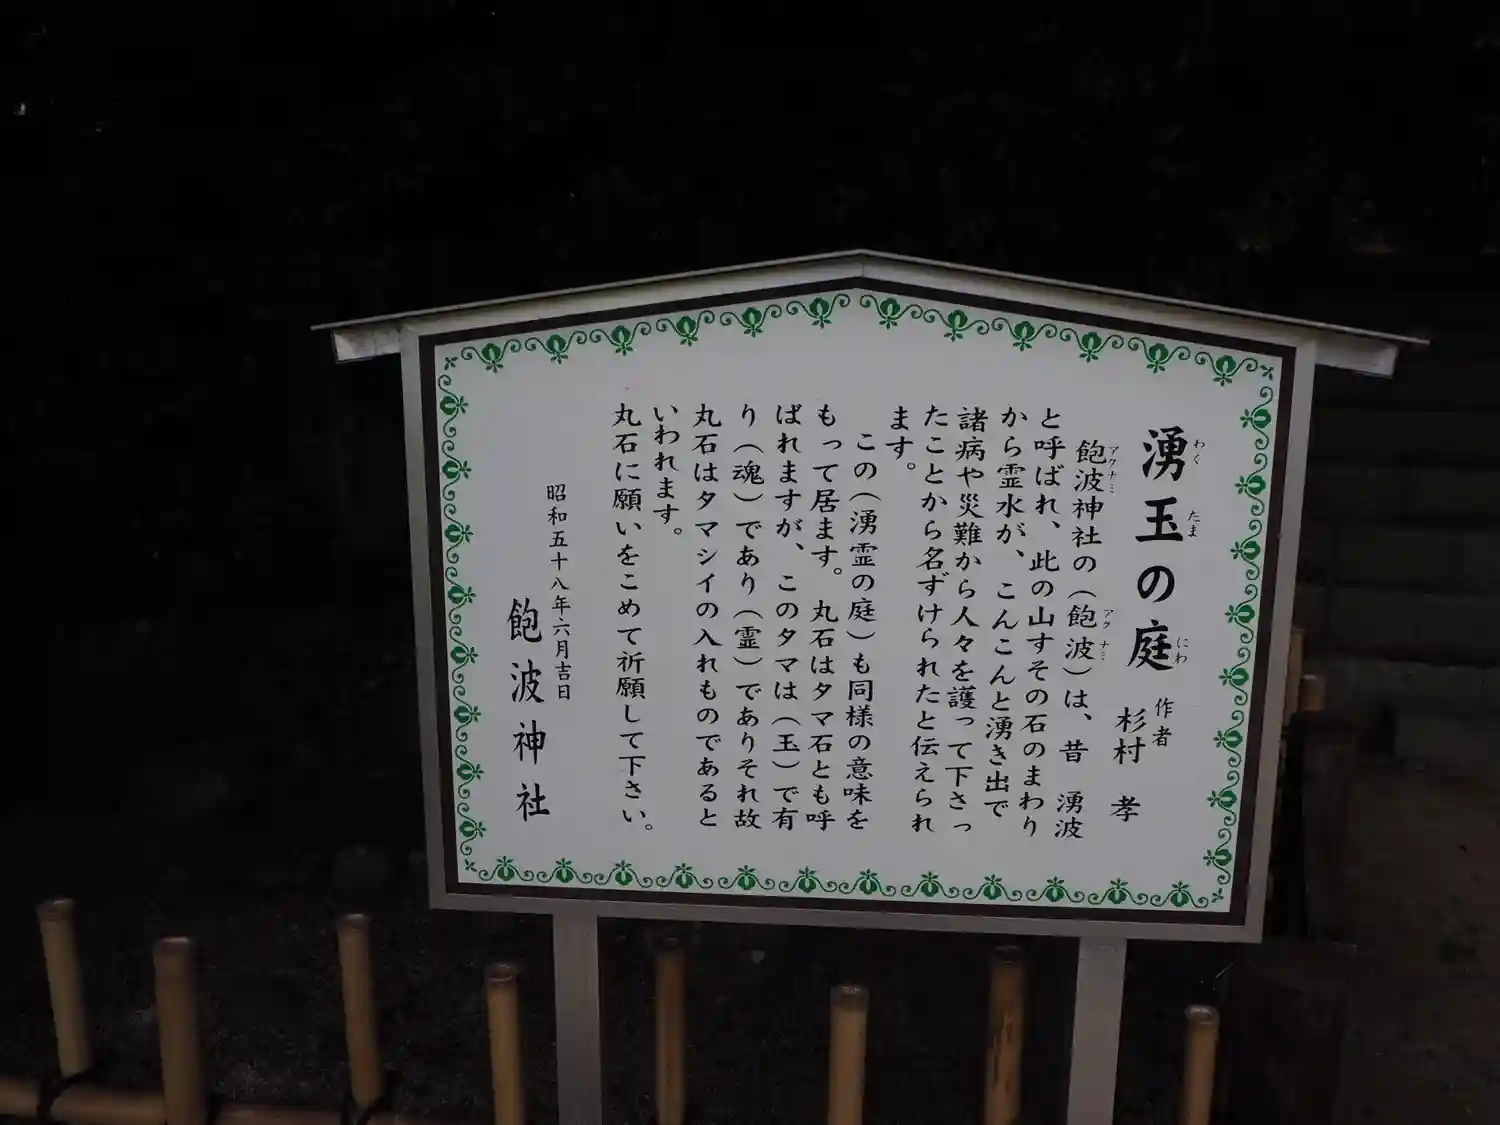 湧玉の庭
作者
杉村 孝
飽波神社の（飽波）は、昔 湧波
と呼ばれ、此の山すその石のまわり
から霊水が、こんこんと湧き出で
諸病や災難から人々を護って下さっ
たことから名ずけられたと伝えられ
ます。
この（湧霊の庭）も同様の意味を
もって居ます。丸石はタマ石とも呼
ばれますが、このタマは（玉）で有
り（魂）であり（霊）でありそれ故
丸石はタマシイの入れものであると
いわれます。
丸石に願いをこめて祈願して下さい。
昭和五十八年六月吉日
飽波神社
わく
たま
にわ
アクナミ
アクナミ